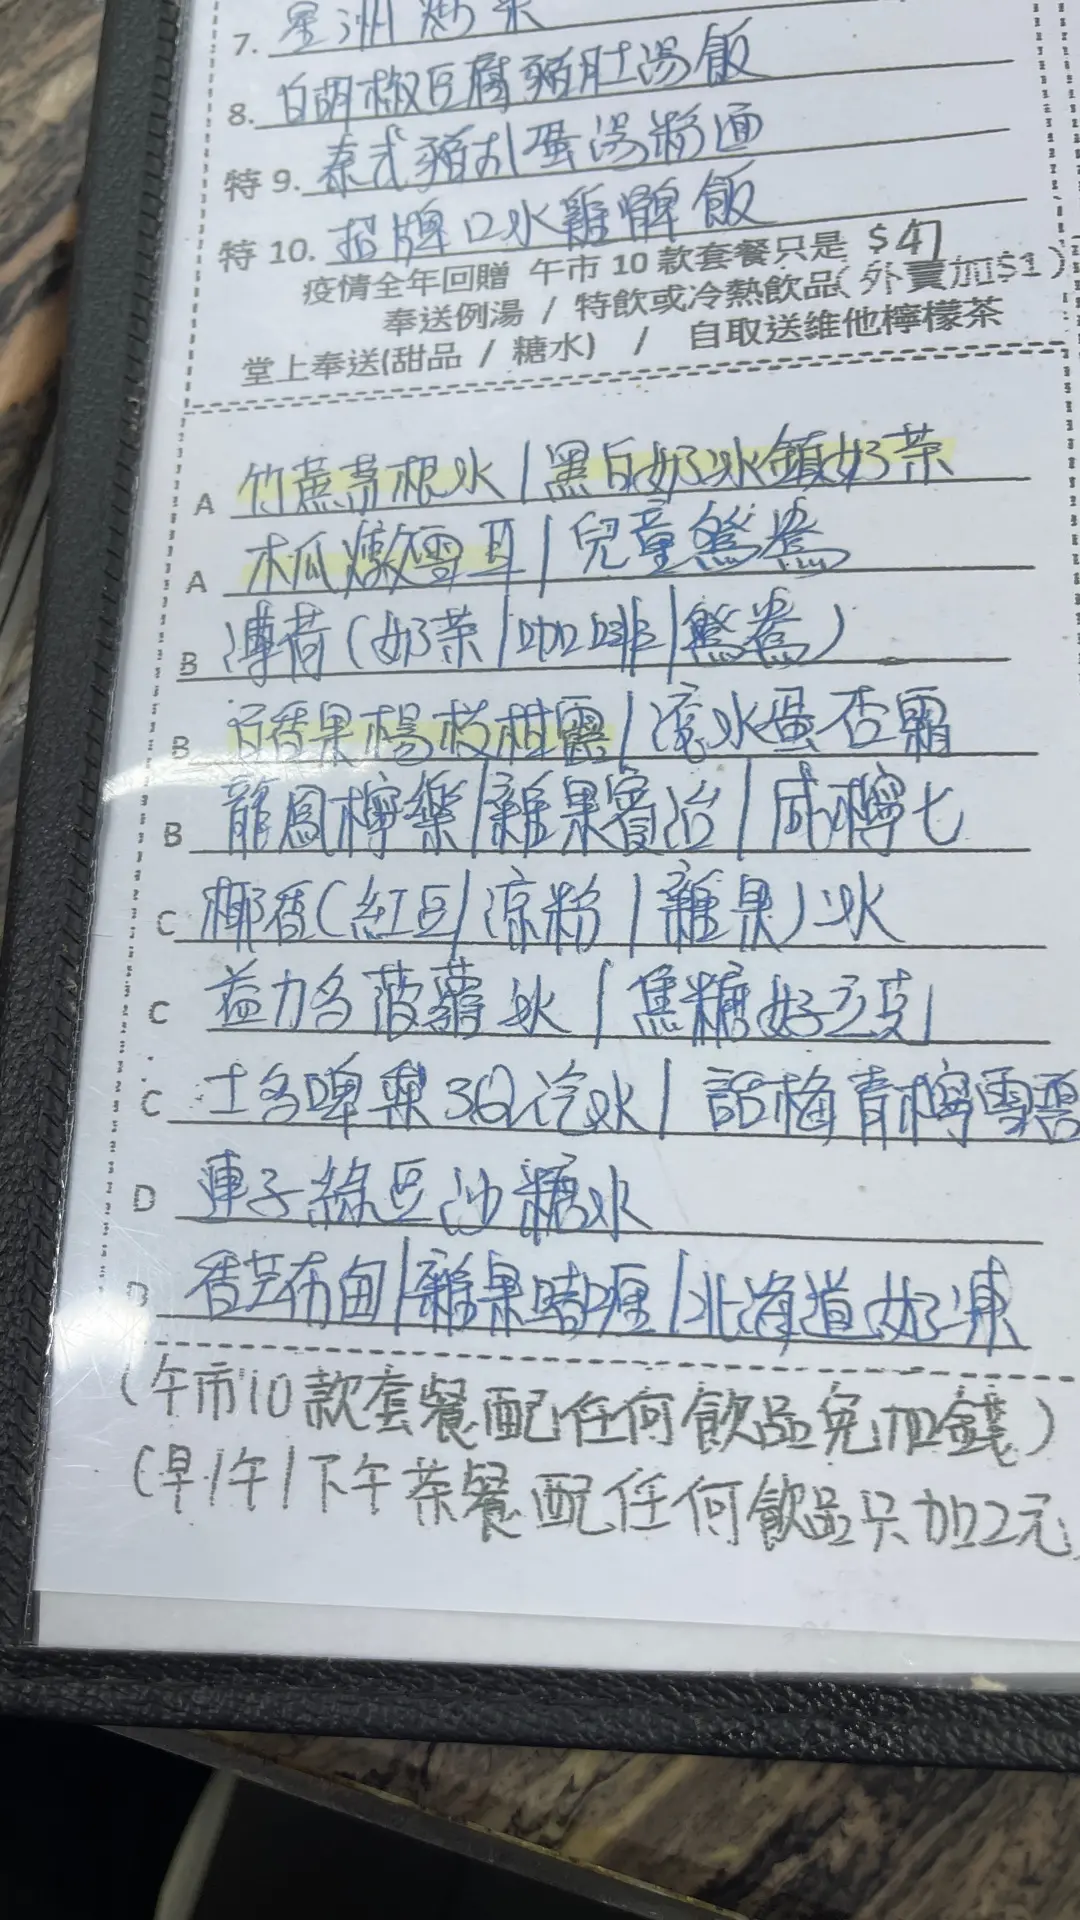 7. 星洲炒米
8. 白胡椒豆腐豬肚湯飯
特 9. 泰式豬扒蛋湯粉面
特 10. 招牌口水雞髀飯
疫情全年回贈 午市 10 款套餐只是 $47
奉送例湯 / 特飲或冷熱飲品(外賣加$1)
堂上奉送(甜品 / 糖水) / 自取送維他檸檬茶
A 竹蔗茅根水/黑白奶冰鎮奶茶
A 木瓜燉雪耳/兒童鴛鴦
B 薄荷(奶茶/咖啡/鴛鴦)
B 百香果楊枝柑露/滾水蛋杏霜
B 龍鳳檸樂/雜果賓治/咸檸七
C 椰香(紅豆/涼粉/雜果)冰
C 益力多菠蘿冰/焦糖奶朱克
C 士多啤梨梳乎汽水/話梅青檸雪碧
D 蓮子綠豆沙糖水
D 香芒布甸/雜果啫喱/北海道奶凍
(午市10款套餐配任何飲品免加錢)
(早/午/下午茶餐配任何飲品只加2元